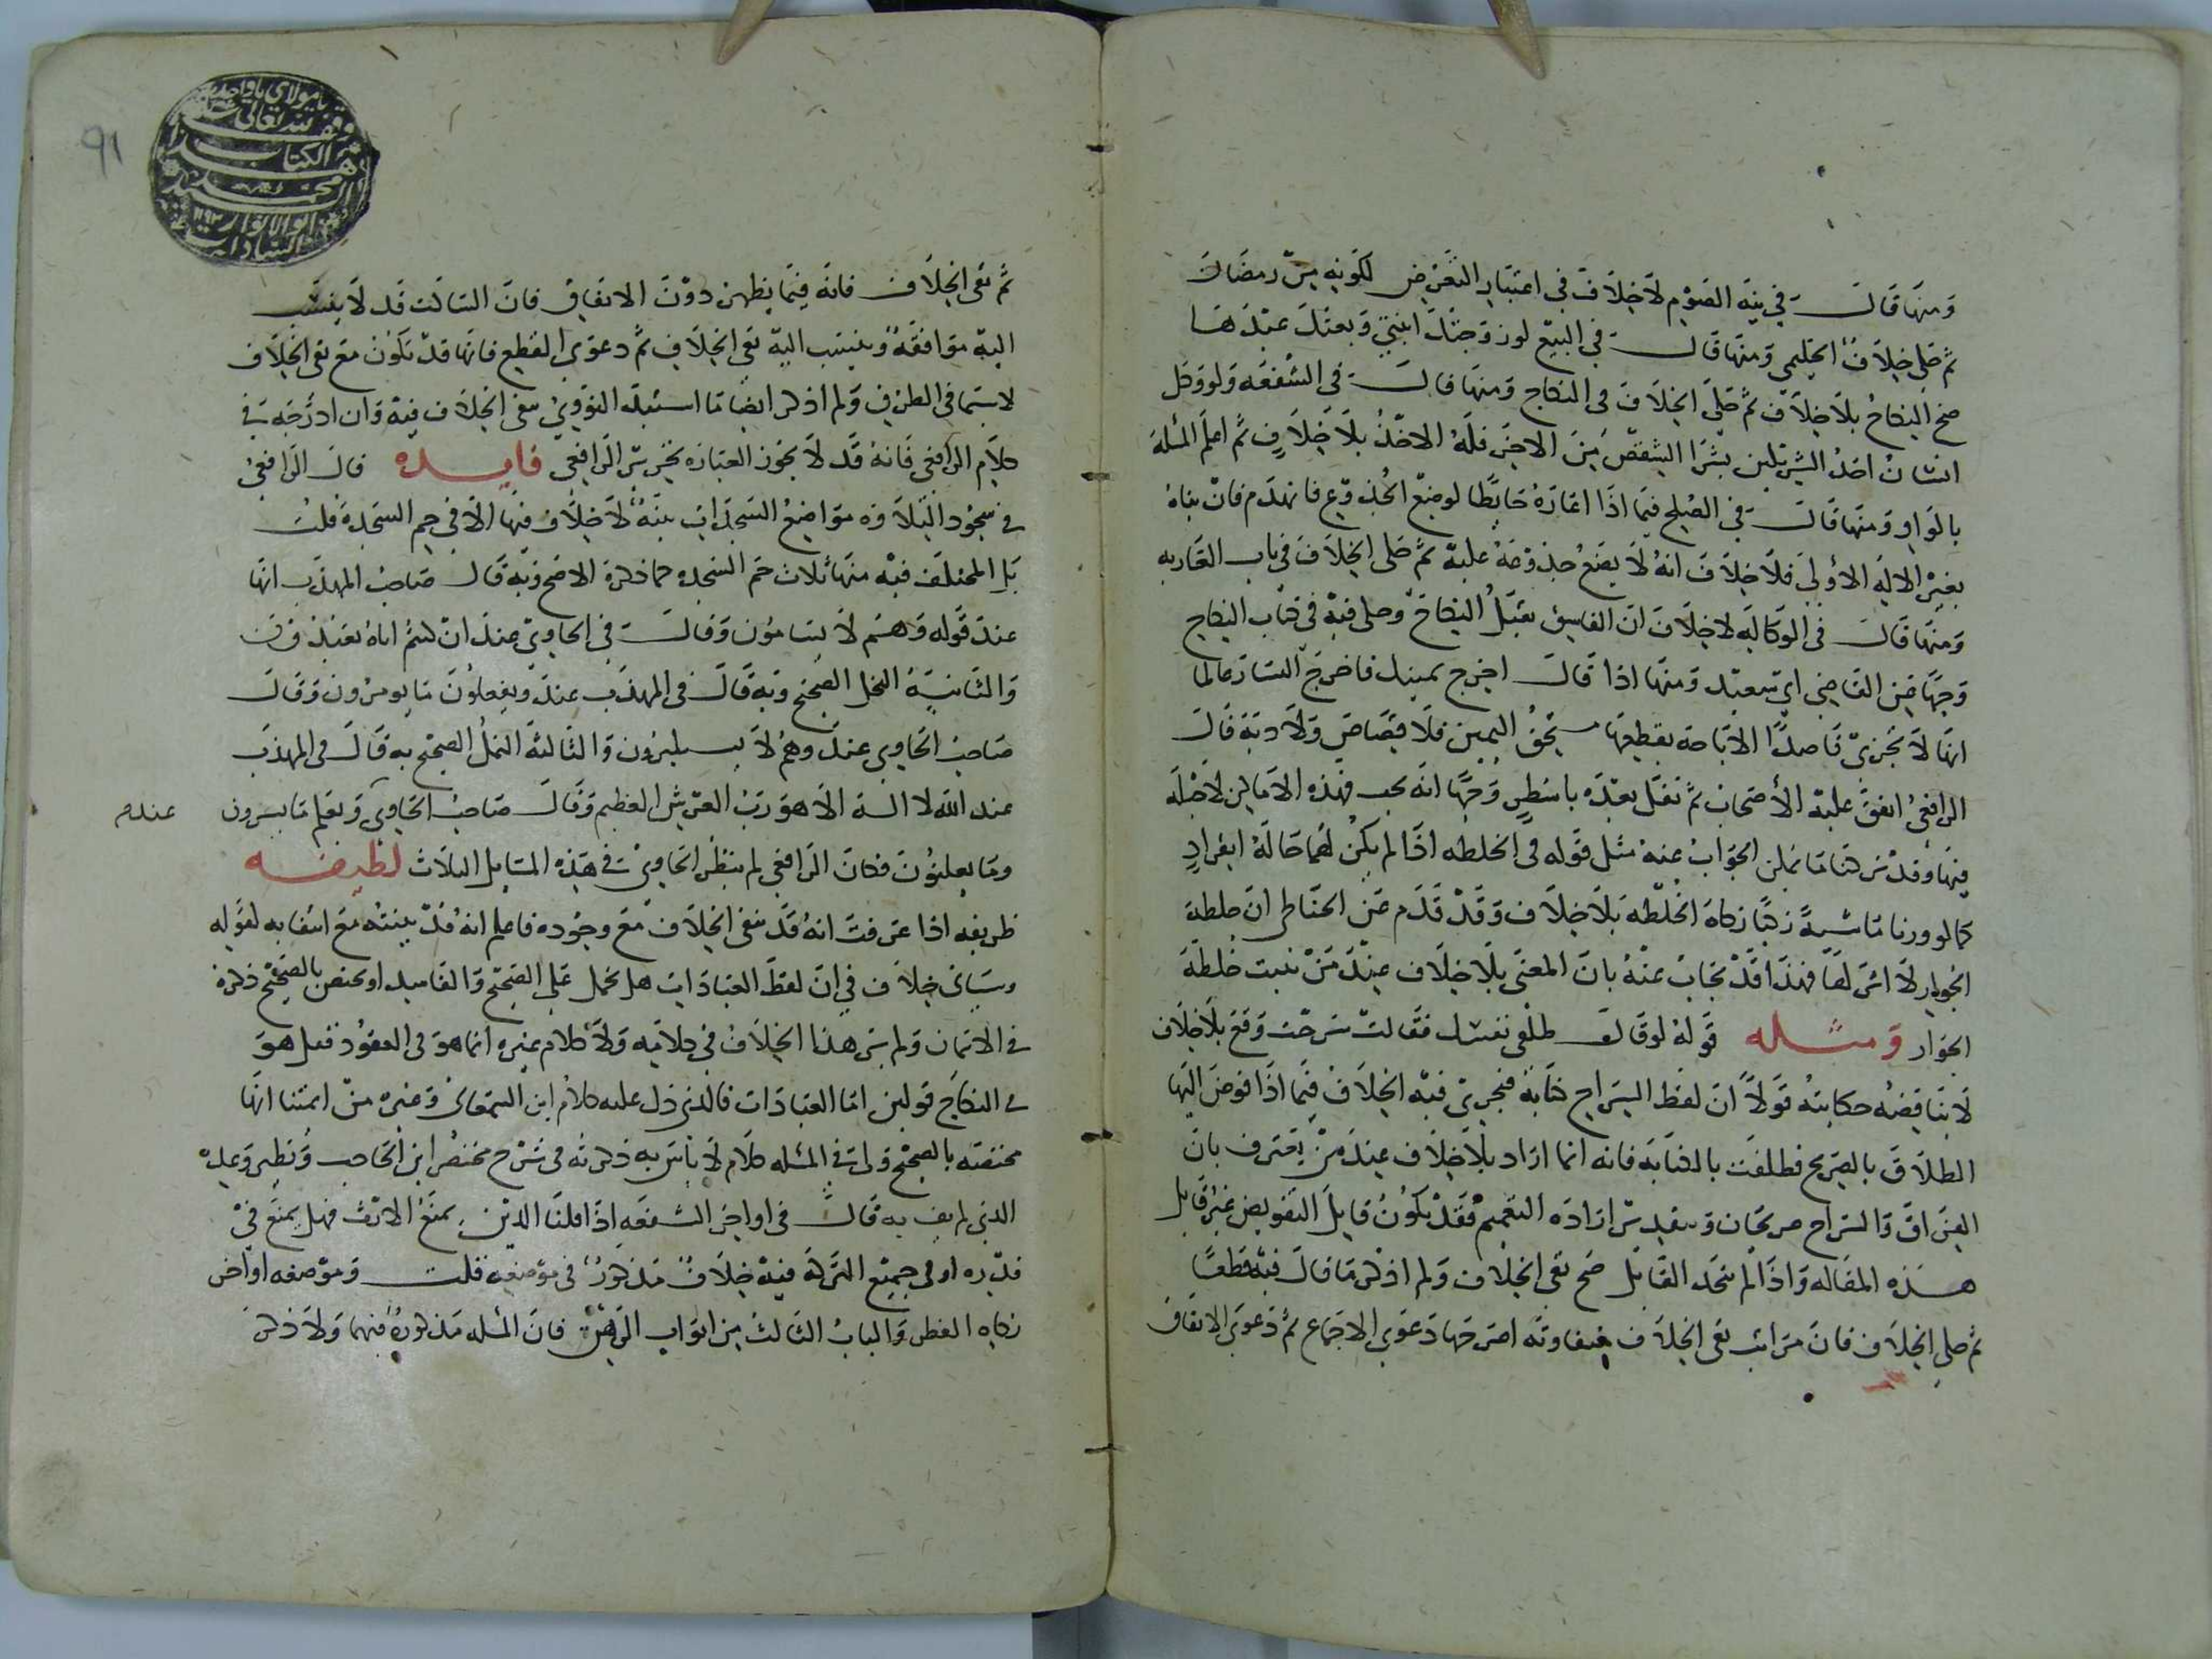 ومنها قال في نية الصوم لا خلاف في اعتبار التعرض لكونه من رمضان
ثم حكى خلاف الحليمي ومنها قال في البيع لو زوجتك ابنتي وبعتك عبدها
صح النكاح بلا خلاف ثم حكى الخلاف في النكاح ومنها قال في الشفعه ولو وكل
انسان احد الشريكين بشرا الشقص من الاخر فله الاخذ بلا خلاف ثم اعلم المسله
بالواو ومنها قال في الصلح فيما اذا اعاره حايطا لوضع الجذوع فانهدم فان بناه
بغير الاله الاولى فلا خلاف انه لا يضع جذوعه عليه ثم حكى الخلاف في باب العاريه
ومنها قال في الوكاله لا خلاف ان الفاسق يقبل النكاح وحكى فيه في كتاب النكاح
وجها عن القاضي ابي سعيد ومنها اذا قال اخرج يمينك فاخرج اليسار عالما
انها لا تجزي قاصدا الاباحة بقطعها مستحق اليمين فلا قصاص ولا دية قال
الرافعي اتفق عليه الاصحاب ثم نقل بعده باسطر وجها انه يجب فهذه الاماكن لاجله
فيها وقد تركنا ما يمكن الجواب عنه مثل قوله في الخلطه اذا لم يكن لهما حالة انفراد
كما لو ورثا ماشية زكيا زكاة الخلطه بلا خلاف وقد قدم عن الحناطي ان خلطة
الجوار لا اثر لها فهذا قد يجاب عنه بان المعنى بلا خلاف عند من يثبت خلطة
الجوار ومثله قوله لو قال طلقي نفسك فقالت سرحت وقع بلا خلاف
لا يناقضه حكايته قولا ان لفظ السراح كناية فيجري فيه الخلاف فيما اذا فوض اليها
الطلاق بالصريح فطلقت بالكنايه فانه انما اراد بلا خلاف عند من يعترف بان
الفراق والسراح صريحان وبتقدير ارادة التعميم فقد يكون قايل التفويض غير قايل
هذه المقاله واذا لم يتحد القايل صح نفي الخلاف ولم اذكر ما قال فيه قطعا
ثم حكى الخلاف فان مراتب نفي الخلاف متفاوته اصرحها دعوى الاجماع ثم دعوى الاتفاق
ثم نفى الخلاف فانه فيما يظهر دون الاتفاق فان الساكت قد لا ينسب
اليه موافقة وينسب اليه نفي الخلاف ثم دعوى القطع فانها قد تكون مع نفي الخلاف
لا سيما في الطرق ولم اذكر ايضا ما استبد النووي بنفي الخلاف فيه وان ادرجه في
كلام الرافعي فانه قد لا يحرز العباره تحرير الرافعي فايده قال الرافعي
في سجود التلاوه مواضع السجدات بينة لا خلاف فيها الا في حم السجدة قلت
بل المختلف فيه منها ثلاث حم السجده كما ذكره الاصح وبه قال صاحب المهذب انها
عند قوله وهم لا يسامون وقال في الحاوي عند ان كنتم اياه تعبدون
والثانية النحل الصحيح وبه قال في المهذب عند ويفعلون ما يومرون وقال
صاحب الحاوي عند وهم لا يستكبرون والثالثة النمل الصحيح به قال في المهذب
عند الله لا اله الا هو رب العرش العظيم وقال صاحب الحاوي ويعلم ما يسرون عندهم
وما يعلنون فكان الرافعي لم ينظر الحاوي في هذه المسايل الثلاث لطيفه
ظريفه اذا عرفت انه قد ينفي الخلاف مع وجوده فاعلم انه قد يثبته مع انتفايه لقوله
وسياتي خلاف في ان لفظ العبادات هل يحمل على الصحيح والفاسد او يختص بالصحيح ذكره
في الايمان ولم نر هذا الخلاف في كلامه ولا كلام غيره انما هو في العقود فعل هو
في النكاح قولين اما العبادات فالذي دل عليه كلام ابن السمعاني وغيره من ائمتنا انها
مختصه بالصحيح ولي في المسله كلام لا باس به ذكرته في شرح مختصر ابن الحاجب ونظير وعده
الذي لم يف به قال في اواخر الشفعه اذا قلنا الدين يمنع الارث فهل يمنع في
قدره او في جميع التركة فيه خلاف مذكور في موضعه قلت وموضعه اواخر
زكاه الفطر والباب الثالث من ابواب الرهن فان المسله مذكورة فيهما ولا ذكر
يا مولاي يا واحد
وقف لله تعالى
هذا الكتاب
محمد
ابو الانوار ١١٩٢
السادات
91